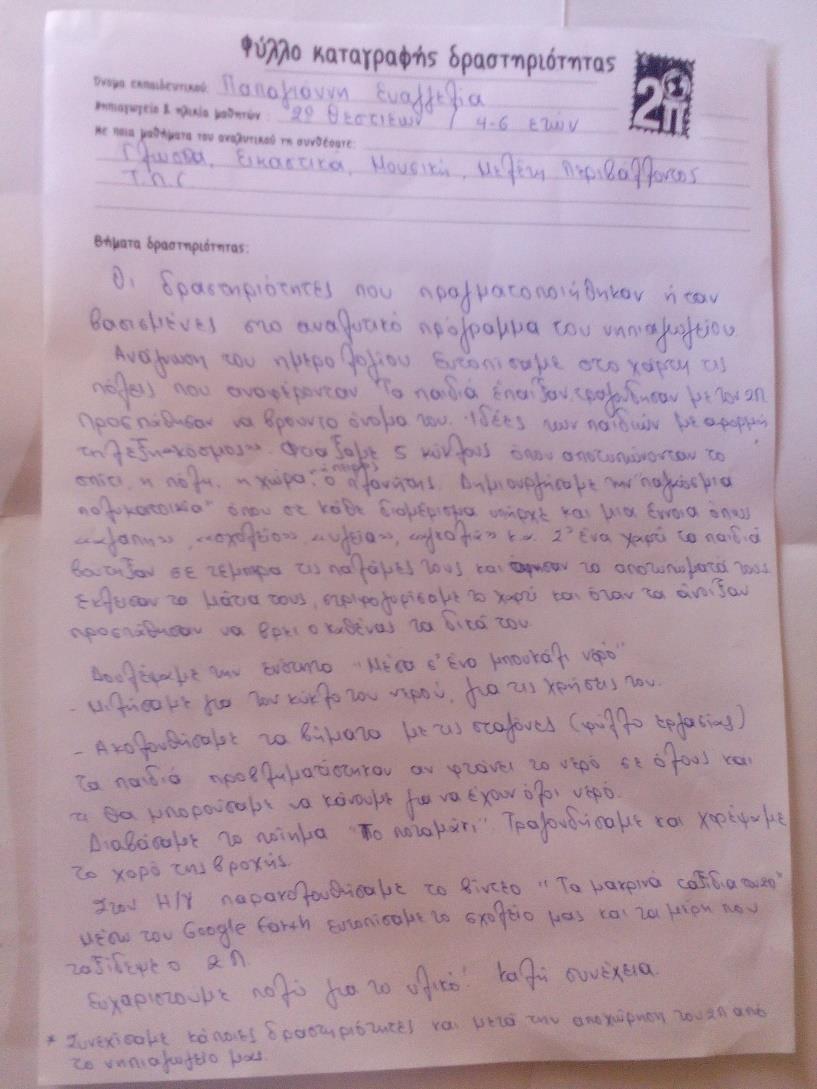 Φύλλο καταγραφής δραστηριότητας
2Π
Όνομα εκπαιδευτικού: Παπαγιάννη Ευαγγελία
Νηπιαγωγείο & ηλικία μαθητών: 2ο Θεστιέων / 4-6 ετών
Με ποια μαθήματα του αναλυτικού τη συνθέσατε:
Γλώσσα, Εικαστικά, Μουσική, Μελέτη Περιβάλλοντος
Τ.Π.Ε
Βήματα δραστηριότητας:
Οι δραστηριότητες που πραγματοποιήθηκαν ήταν
βασισμένες στο αναλυτικό πρόγραμμα του νηπιαγωγείου.
Ανάγνωση του ημερολογίου Εντοπίσαμε στο χάρτη τις
πόλεις που αναφέρονταν Τα παιδιά έπαιξαν, τραγούδησαν με τον 2Π
Προσπάθησαν να βρουν το όνομα του. Ιδέες των παιδιών με αφορμή
τη λέξη «κόσμος». Φτιάξαμε 5 κύκλους όπου αποτυπώνονταν το
σπίτι, η πόλη, η χώρα, ο ήπειρος ο πλανήτης. Δημιουργήσαμε την "παγκόσμια
πολυκατοικία" όπου σε κάθε διαμέρισμα υπήρχε και μια έννοια όπως
«αγάπη», «σχολείο», «υγεία», κ.α. Σ' ένα χαρτί τα παιδιά
βούτηξαν σε τέμπερα τις παλάμες τους και άφησαν το αποτύπωμά τους
Έκλεισαν τα μάτια τους, στριφογυρίσαμε το χαρτί και όταν τα άνοιξαν
προσπάθησαν να βρει ο καθένας τα δικά του.
Δουλέψαμε την ενότητα "Μέσα σ' ένα μπουκάλι νερό"
- Μιλήσαμε για τον κύκλο του νερού, για τις χρήσεις του.
- Ακολουθήσαμε τα βήματα με τις σταγόνες (φύλλο εργασίας)
τα παιδιά προβληματίστηκαν αν φτάνει το νερό σε όλους και
τι θα μπορούσαμε να κάνουμε για να έχουν όλοι νερό.
Διαβάσαμε το ποίημα "Το ποταμάκι" Τραγουδήσαμε και χορέψαμε
το χορό της βροχής.
Στον Η/Υ παρακολουθήσαμε το βίντεο "Τα μακρινά ταξίδια του 2Π"
μέσω του Google Earth εντοπίσαμε το σχολείο μας και τα μέρη που
ταξίδεψε ο 2Π.
Ευχαριστούμε πολύ για το υλικό! Καλή συνέχεια.
* Συνεχίσαμε κάποιες δραστηριότητες και μετά την αποχώρηση του 2Π από
το νηπιαγωγείο μας.